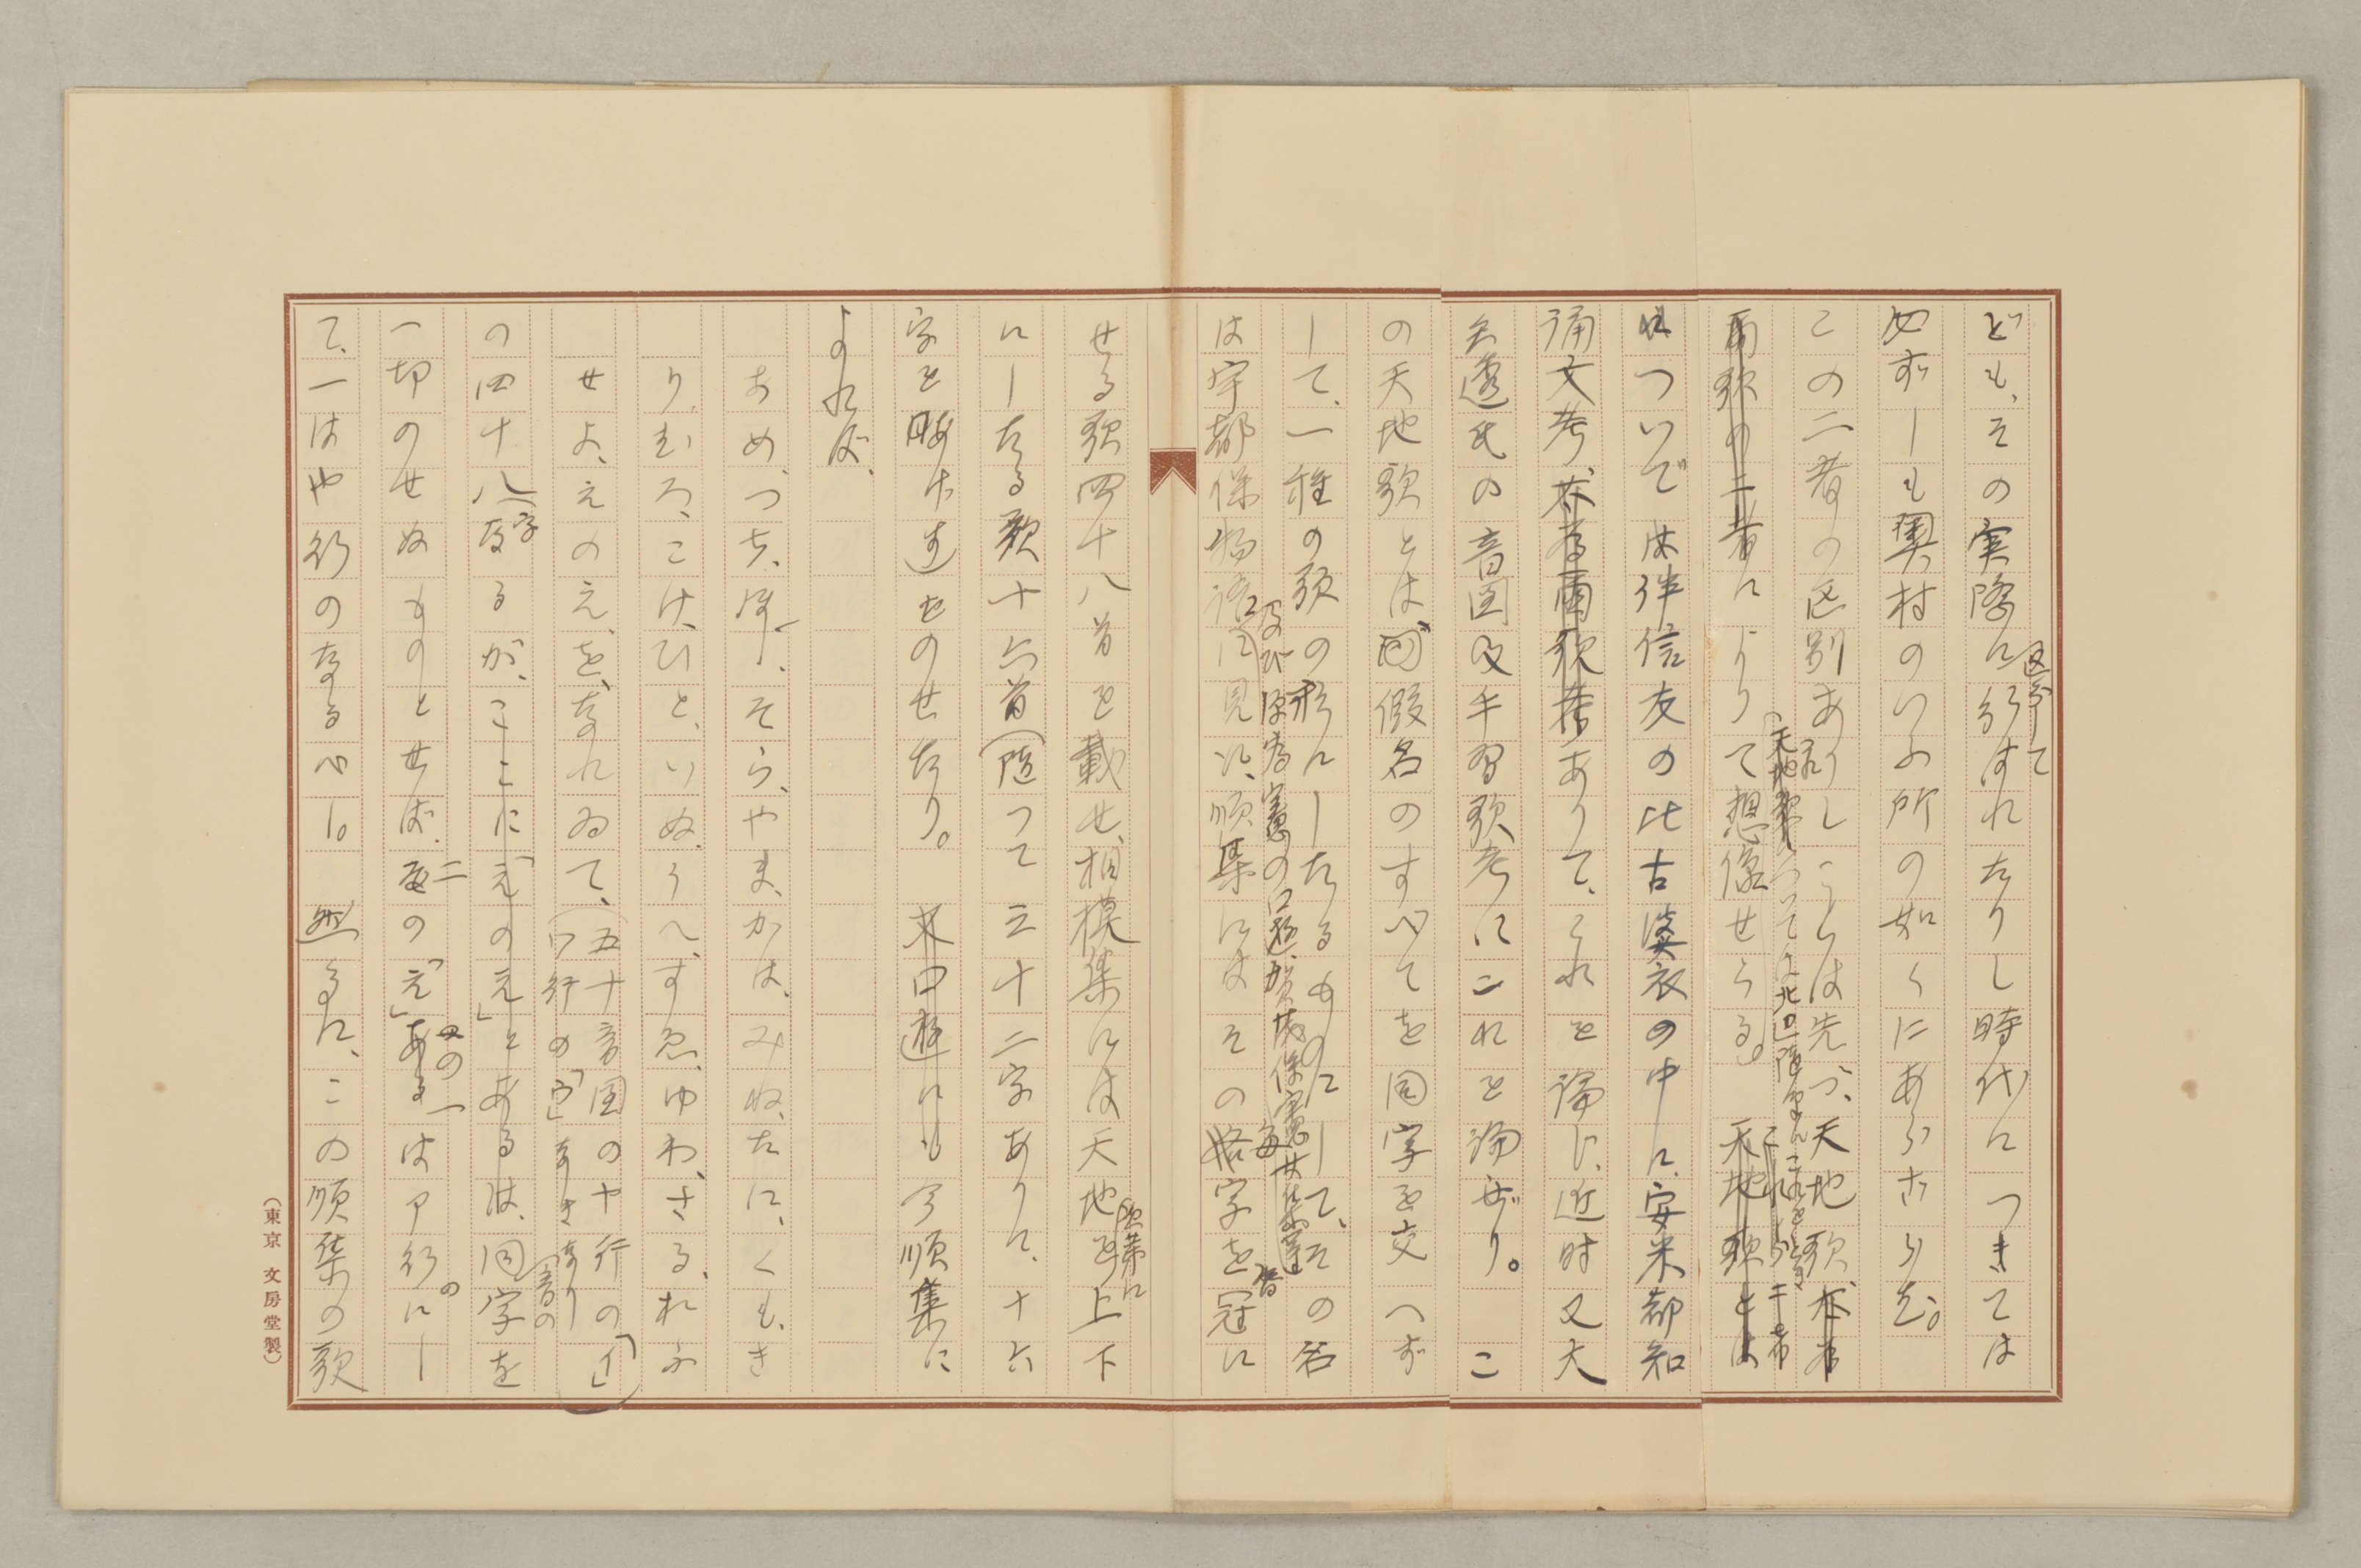 ども、その実際に区分して行はれたりし時代につきては
必ずしも奥村のいふ所の如くにあらざりき。
この二者の区別ありしことは先づ、天地歌
両歌の二者によりて想像せらる。天地歌とは
についでは伴信友の比古婆衣の中に、安米都知
誦文考ありて、これを論じ、近時又大
矢透氏の音図及手習歌考にこれを論ぜり。こ
の天地歌とは、假名のすべてを同字を交へず
して、一種の歌の形にしたるものにして、その名
は宇都保物語に見え、順集にはその毎字を冠に
及び源為憲の口遊、賀茂保憲女集等
せる歌四十八首を載せ、相模集には天地を上下
にしたる歌十六首(随つて三十二字あり)、十六
字を略せずものせたり。又口遊にも今順集に
よれば、
あめ、つち、ほし、そら、やま、かは、みね、たに、くも、き
り、むろ、こけ、ひと、いぬ、うへ、すゑ、ゆわ、さる、おふ
せよ、えのえを、なれゐて、(五十音図のや行の「イ」
ワ行の「ウ」なきなり)
の四十八字なるが、ここに「えのえ」とあるは、同字を
一切のせぬものとせば、二の「え」の一はア行のにし
て、一はや行のなるべし。然るに、この順集の歌
(東京 文房堂製)